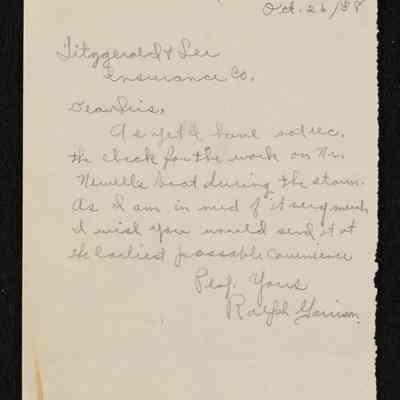 Oct. 26/38
Fitzgerald & Lee
Insurance Co.
Dear Sirs,
As yet I have not rec.
the check for the work on Mr.
Newell's boat during the storm.
As I am in need of it very much
I wish you would send it at
the earliest possable convenience
Resp. Yours
Ralph Garrison.